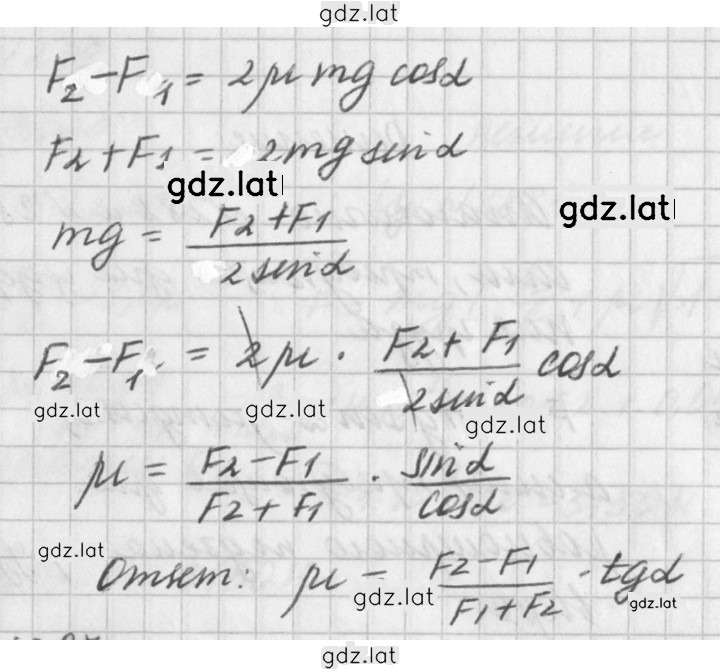 gdz.lat
F₂ – F₁ = 2μ mg cosα
F₂ + F₁ = 2mg sinα
gdz.lat
gdz.lat
mg = (F₂ + F₁) / (2 sinα)
F₂ – F₁ = 2μ · (F₂ + F₁) / (2 sinα) cosα
gdz.lat gdz.lat gdz.lat
μ = (F₂ – F₁) / (F₂ + F₁) · sinα / cosα
gdz.lat
Ответ: μ = (F₂ – F₁) / (F₁ + F₂) · tgα
gdz.lat gdz.lat
gdz.lat